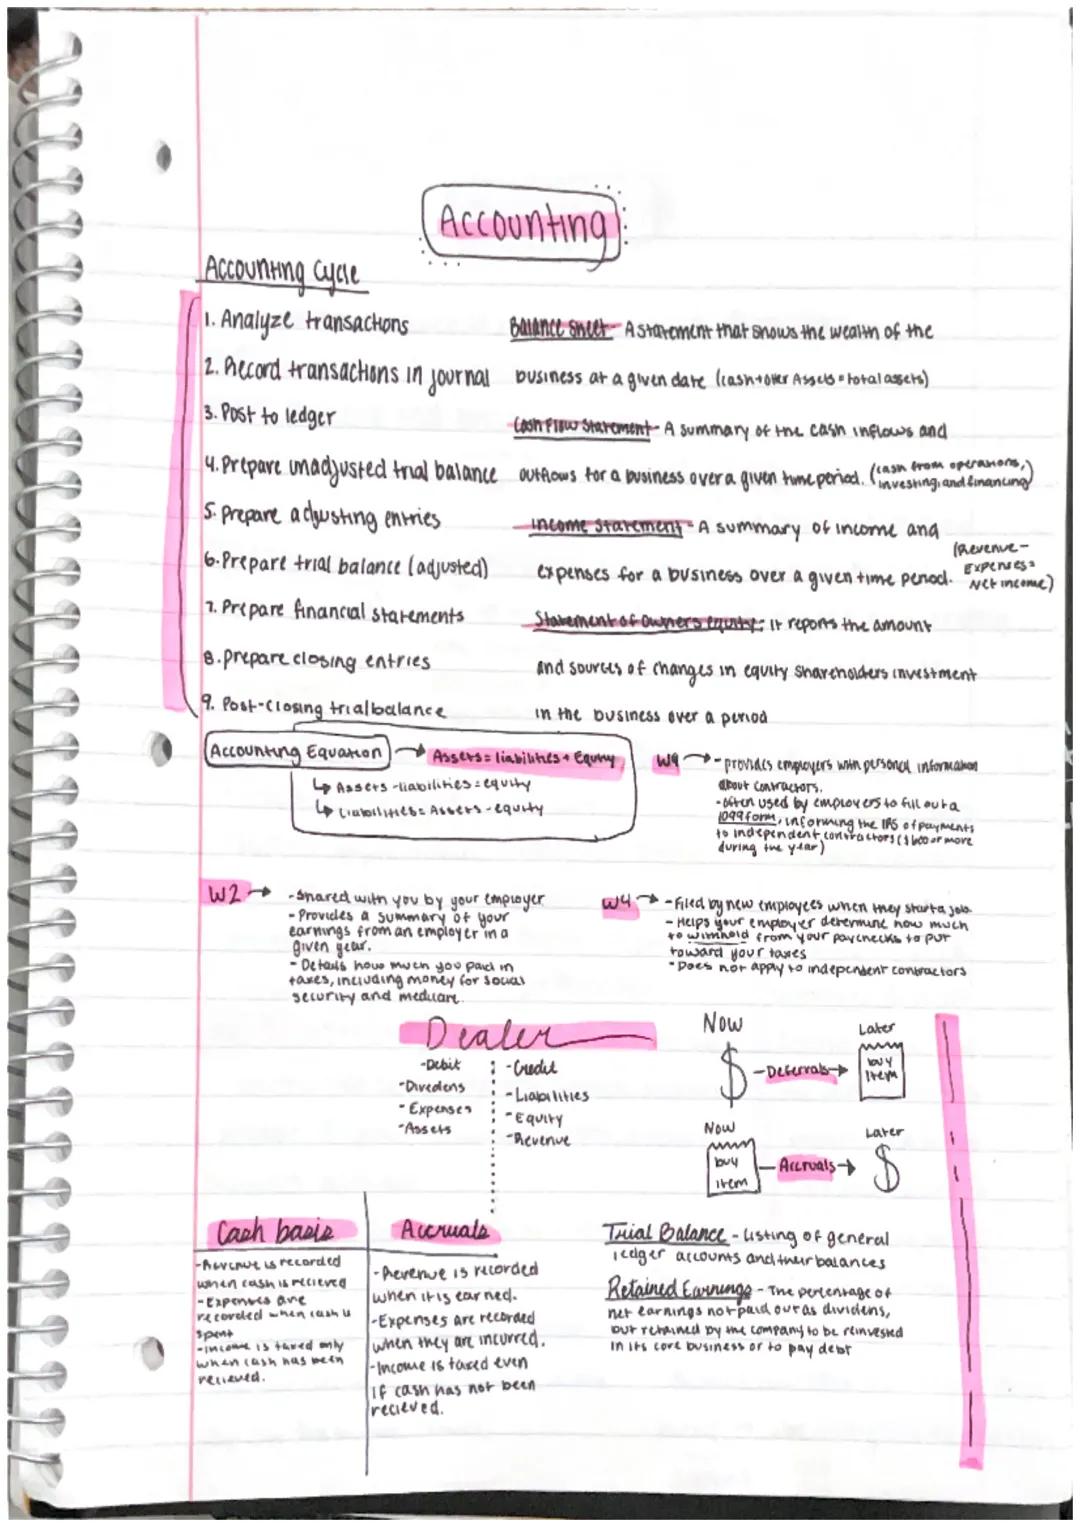 Accounting
Accounting Cycle
1. Analyze transactions
2. Record transactions in journal
3. Post to ledger
4. Prepare unadjusted trial balance
5. Prepare adjusting entries
6. Prepare trial balance (adjusted)
7. Prepare financial statements
8. Prepare closing entries
9. Post-closing trial balance
Balance Sheet - A statement that shows the wealth of the
business at a given date (cash + other Assets = total assets)
Cash Flow Statement - A summary of the cash inflows and
outflows for a business over a given time period. (cash from operations,
investing, and financing)
Income Statement - A summary of income and
expenses for a business over a given time period. (Revenue -
Expenses =
Net income)
Statement of Owners Equity: It reports the amount
and sources of changes in equity shareholders investment
in the business over a period
Accounting Equation → Assets = liabilities + Equity
↳ Assets - liabilities = equity
↳ Liabilities = Assets - equity
W9 → - provides employers with personal information
about contractors.
- often used by employers to fill out a
1099 form, informing the IRS of payments
to independent contractors ($600 or more
during the year)
W2 → - Shared with you by your employer
- Provides a summary of your
earnings from an employer in a
given year.
- Details how much you paid in
taxes, including money for social
security and medicare.
W4 → - Filed by new employees when they start a job.
- Helps your employer determine how much
to withhold from your paychecks to put
toward your taxes
- Does not apply to independent contractors
Dealer
- Debit
- Divedens
- Expenses
- Assets
- Credit
- Liabilities
- Equity
- Revenue
Now
Later
$ - Deferrals → buy
item
Now
Later
buy
item - Accruals → $
Cash basis
- Revenue is recorded
when cash is recieved
- Expenses are
recorded when cash is
spent
- Income is taxed only
when cash has been
recieved.
Accruals
- Revenue is recorded
when it is earned.
- Expenses are recorded
when they are incurred.
- Income is taxed even
if cash has not been
recieved.
Trial Balance - Listing of general
ledger accounts and their balances
Retained Earnings - The percentage of
net earnings not paid out as dividens,
but retained by the company to be reinvested
in its core business or to pay debt